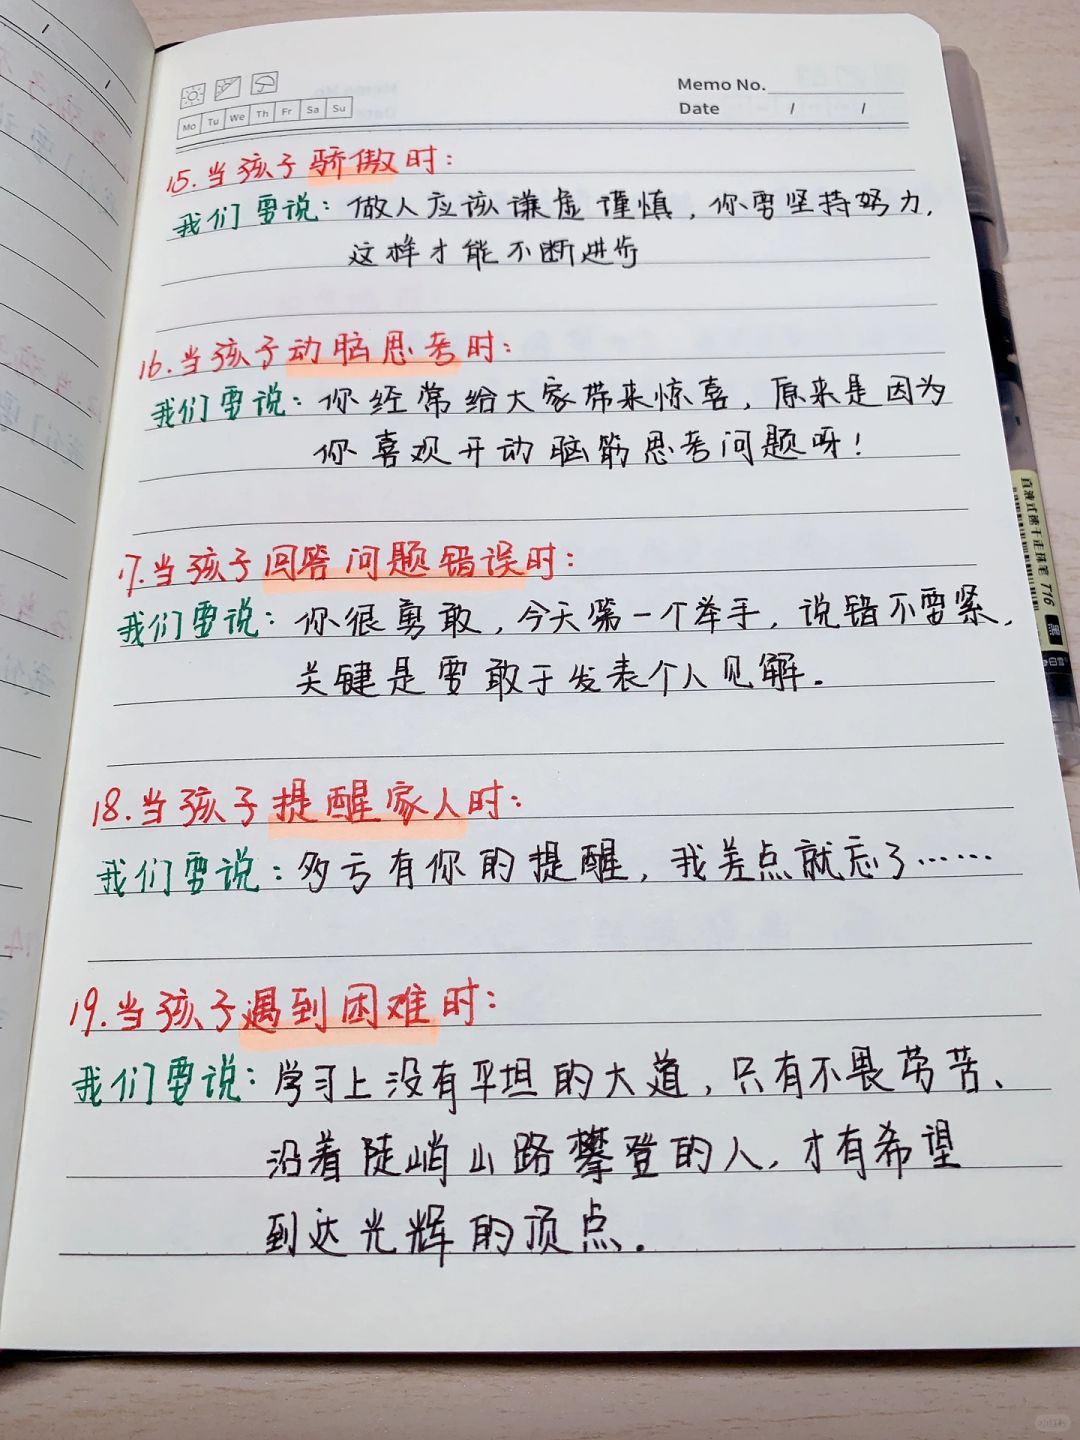 Memo No.
Mo Tu We Th Fr Sa Su
Date / /
15.当孩子骄傲时:
我们要说: 做人应该谦虚谨慎,你要坚持努力,
这样才能不断进步
16.当孩子动脑思考时:
我们要说: 你经常给大家带来惊喜,原来是因为
你喜欢开动脑筋思考问题呀!
17.当孩子回答问题错误时:
我们要说: 你很勇敢,今天第一个举手,说错不要紧,
关键是要敢于发表个人见解.
18.当孩子提醒家人时:
我们要说: 多亏有你的提醒,我差点就忘了……
19.当孩子遇到困难时:
我们要说: 学习上没有平坦的大道,只有不畏劳苦、
沿着陡峭山路攀登的人,才有希望
到达光辉的顶点.
直液式速干走珠笔 T16 黑
小红书